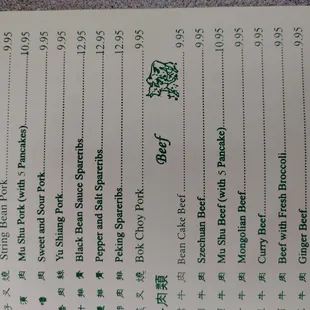 子 叉 燒 String Bean Pork 9.95
肉 Mu Shu Pork (with 5 Pancakes) 10.95
肉 Sweet and Sour Pork 9.95
肉 絲 Yu Shiang Pork 9.95
汁 排 骨 Black Bean Sauce Spareribs 12.95
排 骨 Pepper and Salt Spareribs 12.95
排 骨 Peking Spareribs 12.95
叉 燒 Bok Choy Pork 9.95
肉類 Beef
牛 肉 Bean Cake Beef 9.95
牛 肉 Szechuan Beef 9.95
牛 肉 Mu Shu Beef (with 5 Pancake) 10.95
牛 肉 Mongolian Beef 9.95
牛 肉 Curry Beef 9.95
牛 肉 Beef with Fresh Broccoli 9.95
牛 肉 Ginger Beef 9.95